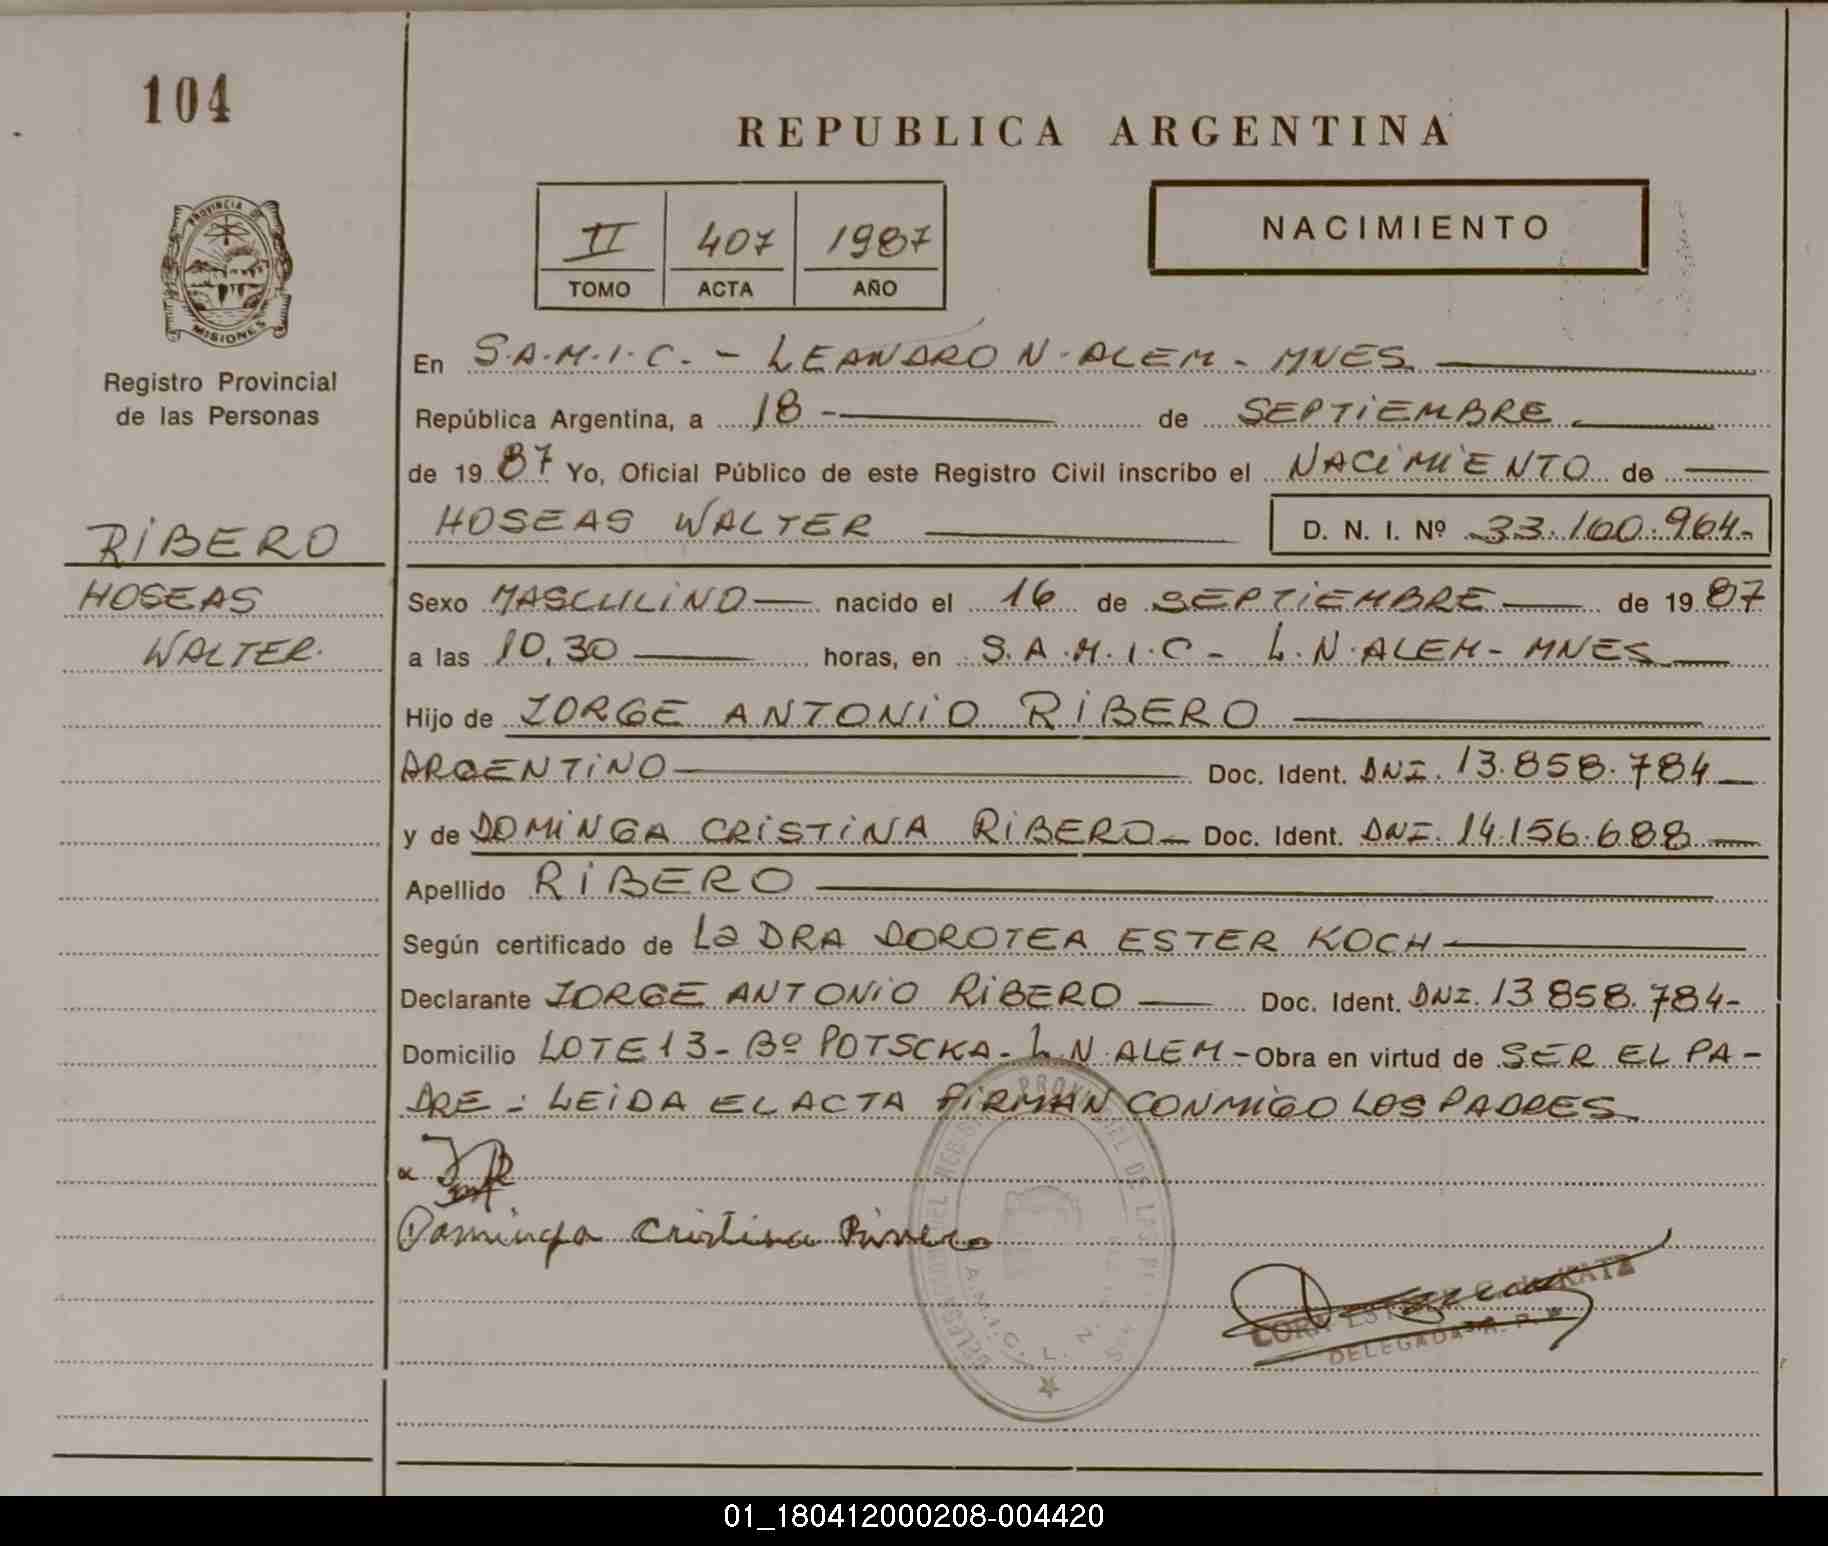 104
REPUBLICA ARGENTINA
PROVINCIA DE
MISIONES
Registro Provincial
de las Personas
II 407 1987
TOMO ACTA AÑO
NACIMIENTO
En S.A.M.I.C. - LEANDRO N. ALEM - MNES
República Argentina, a 18 - de SEPTIEMBRE
de 1987 Yo, Oficial Público de este Registro Civil inscribo el NACIMIENTO de
HOSEAS WALTER D. N. I. Nº 33.160.964-
RIBERO
HOSEAS
WALTER.
Sexo MASCULINO nacido el 16 de SEPTIEMBRE de 1987
a las 10,30 horas, en S.A.M.I.C - L.N.ALEM - MNES
Hijo de JORGE ANTONIO RIBERO
ARGENTINO Doc. Ident. DNI. 13.858.784
y de DOMINGA CRISTINA RIBERO Doc. Ident. DNI. 14.156.688
Apellido RIBERO
Según certificado de La DRA DOROTEA ESTER KOCH
Declarante JORGE ANTONIO RIBERO Doc. Ident. DNI. 13.858.784-
Domicilio LOTE 13 - Bº POTSCKA - L.N.ALEM - Obra en virtud de SER EL PA-
DRE - LEIDA EL ACTA FIRMAN CONMIGO LOS PADRES
Dominga Cristina Rivero
KATZ
DELEGADA R. P.
01_180412000208-004420